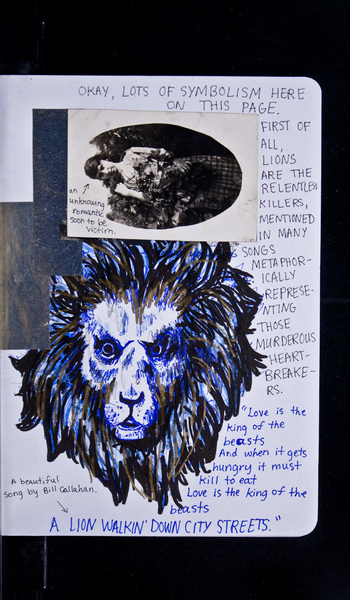 OKAY, LOTS OF SYMBOLISM HERE
ON THIS PAGE.
FIRST OF
ALL,
LIONS
ARE THE
RELENTLESS
KILLERS,
MENTIONED
IN MANY
SONGS
METAPHOR-
ICALLY
REPRESE-
NTING
THOSE
MURDEROUS
HEART-
BREAKE-
RS.
an
unknowing
romantic
soon to be
victim.
"Love is the
king of the
beasts
And when it gets
hungry it must
kill to eat
Love is the king of the
beasts
A LION WALKIN' DOWN CITY STREETS."
A beautiful
song by Bill Callahan.